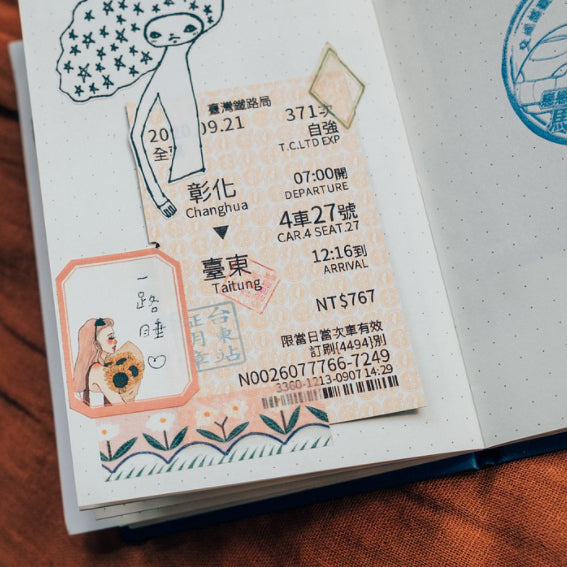 臺灣鐵路局
371次
09.21
自強
T.C.LTD EXP
彰化
07:00開
Changhua
DEPARTURE
4車27號
CAR.4 SEAT.27
臺東
12:16到
Taitung
ARRIVAL
NT$767
台東站
証明章
一路睡
限當日當次車有效
訂刷[4494]別
N0026077766-7249
3360-1213-0907 14:29